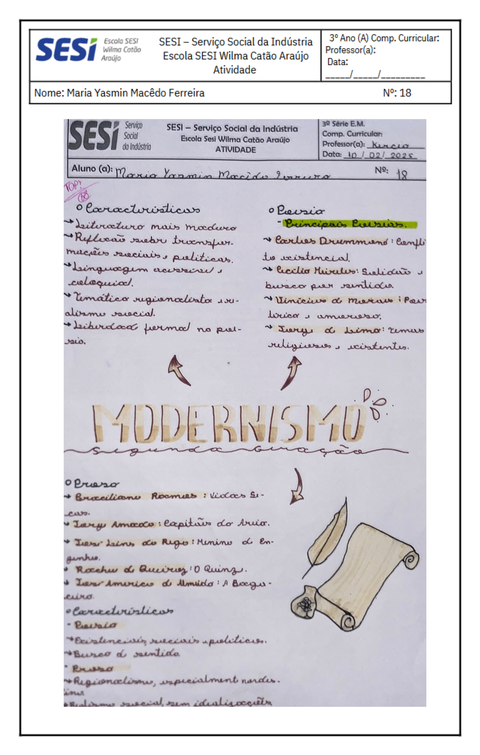 SESI Escola SESI Wilma Catão Araújo
SESI – Serviço Social da Indústria
Escola SESI Wilma Catão Araújo
Atividade
3º Ano (A) Comp. Curricular:
Professor(a):
Data:
____/____/________
Nome: Maria Yasmin Macêdo Ferreira Nº: 18
SESI Serviço Social da Indústria
SESI – Serviço Social da Indústria
Escola Sesi Wilma Catão Araújo
ATIVIDADE
3ª Série E.M.
Comp. Curricular:
Professor(a):
Data: 10/02/2025
Aluno (a): Maria Yasmin Macêdo Ferreira Nº: 18
TOP!
Características
Literatura mais madura
Reflexão sobre transfor-
mações sociais e políticas.
Linguagem acessível e
coloquial.
Temática regionalista e re-
alismo social.
Liberdade formal na poe-
sia.
Poesia
- Principais Poesias.
Carlos Drummond: Confli
to existencial
Cecília Mireles: Solidão e
busca por sentido.
Vinícius de Morais: Poe
lírico e amoroso.
Jorge de Lima: temas
religiosos e existentes.
MODERNISMO
Segunda Geração
Prosa
Graciliano Ramos: Vidas Se-
cas.
Jorge Amado: Capitães da Areia.
José Lins do Rego: Menino de En-
genho.
Rachel de Queiroz: O Quinze.
José Américo de Almeida: A Baga-
ceira.
Características
- Poesia
Existenciais, sociais e políticas.
Busca de sentido
- Prosa
Regionalismo, especialment nordes-
tino
Realismo social, sem idealizações